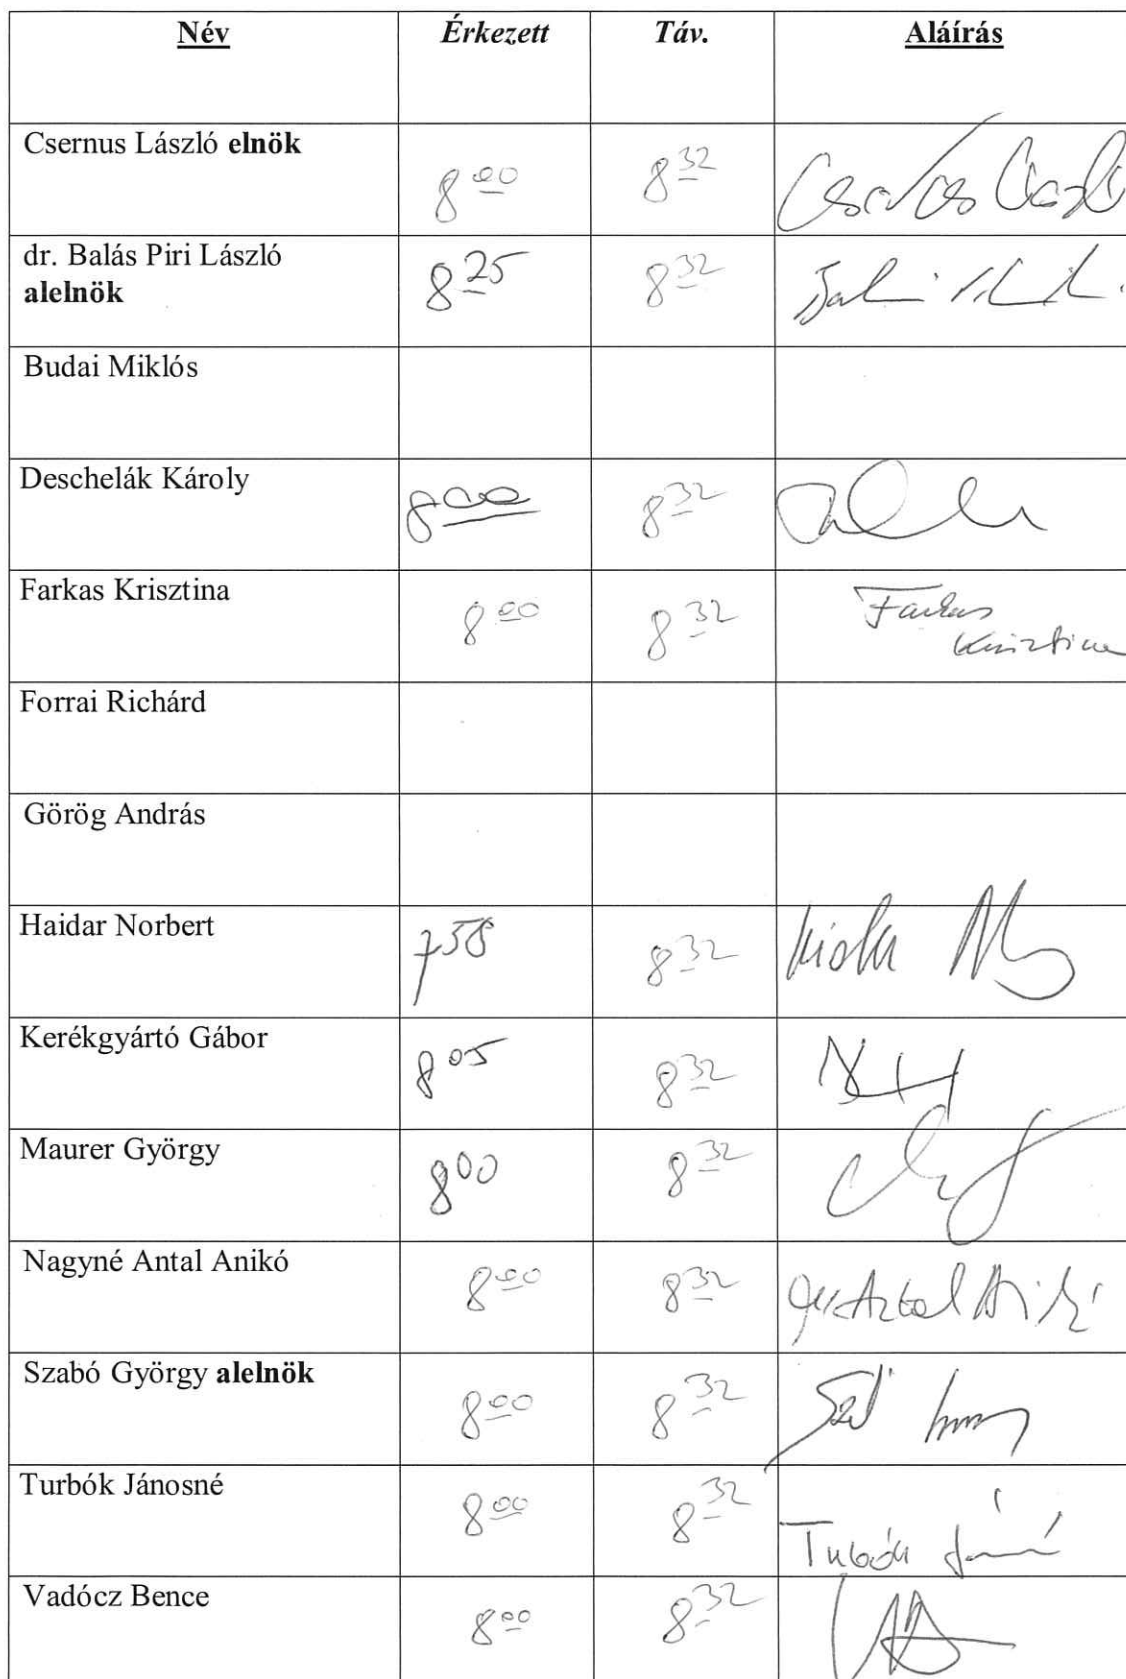 Név Érkezett Táv. Aláírás
Csernus László elnök 8 00 8 32
dr. Balás Piri László 8 25 8 32
alelnök
Budai Miklós
Deschelák Károly 8 00 8 32
Farkas Krisztina 8 00 8 32 Farkas
Krisztina
Forrai Richárd
Görög András
Haidar Norbert 7 58 8 32
Kerékgyártó Gábor 8 05 8 32
Maurer György 8 00 8 32
Nagyné Antal Anikó 8 00 8 32
Szabó György alelnök 8 00 8 32
Turbók Jánosné 8 00 8 32
Vadócz Bence 8 00 8 32